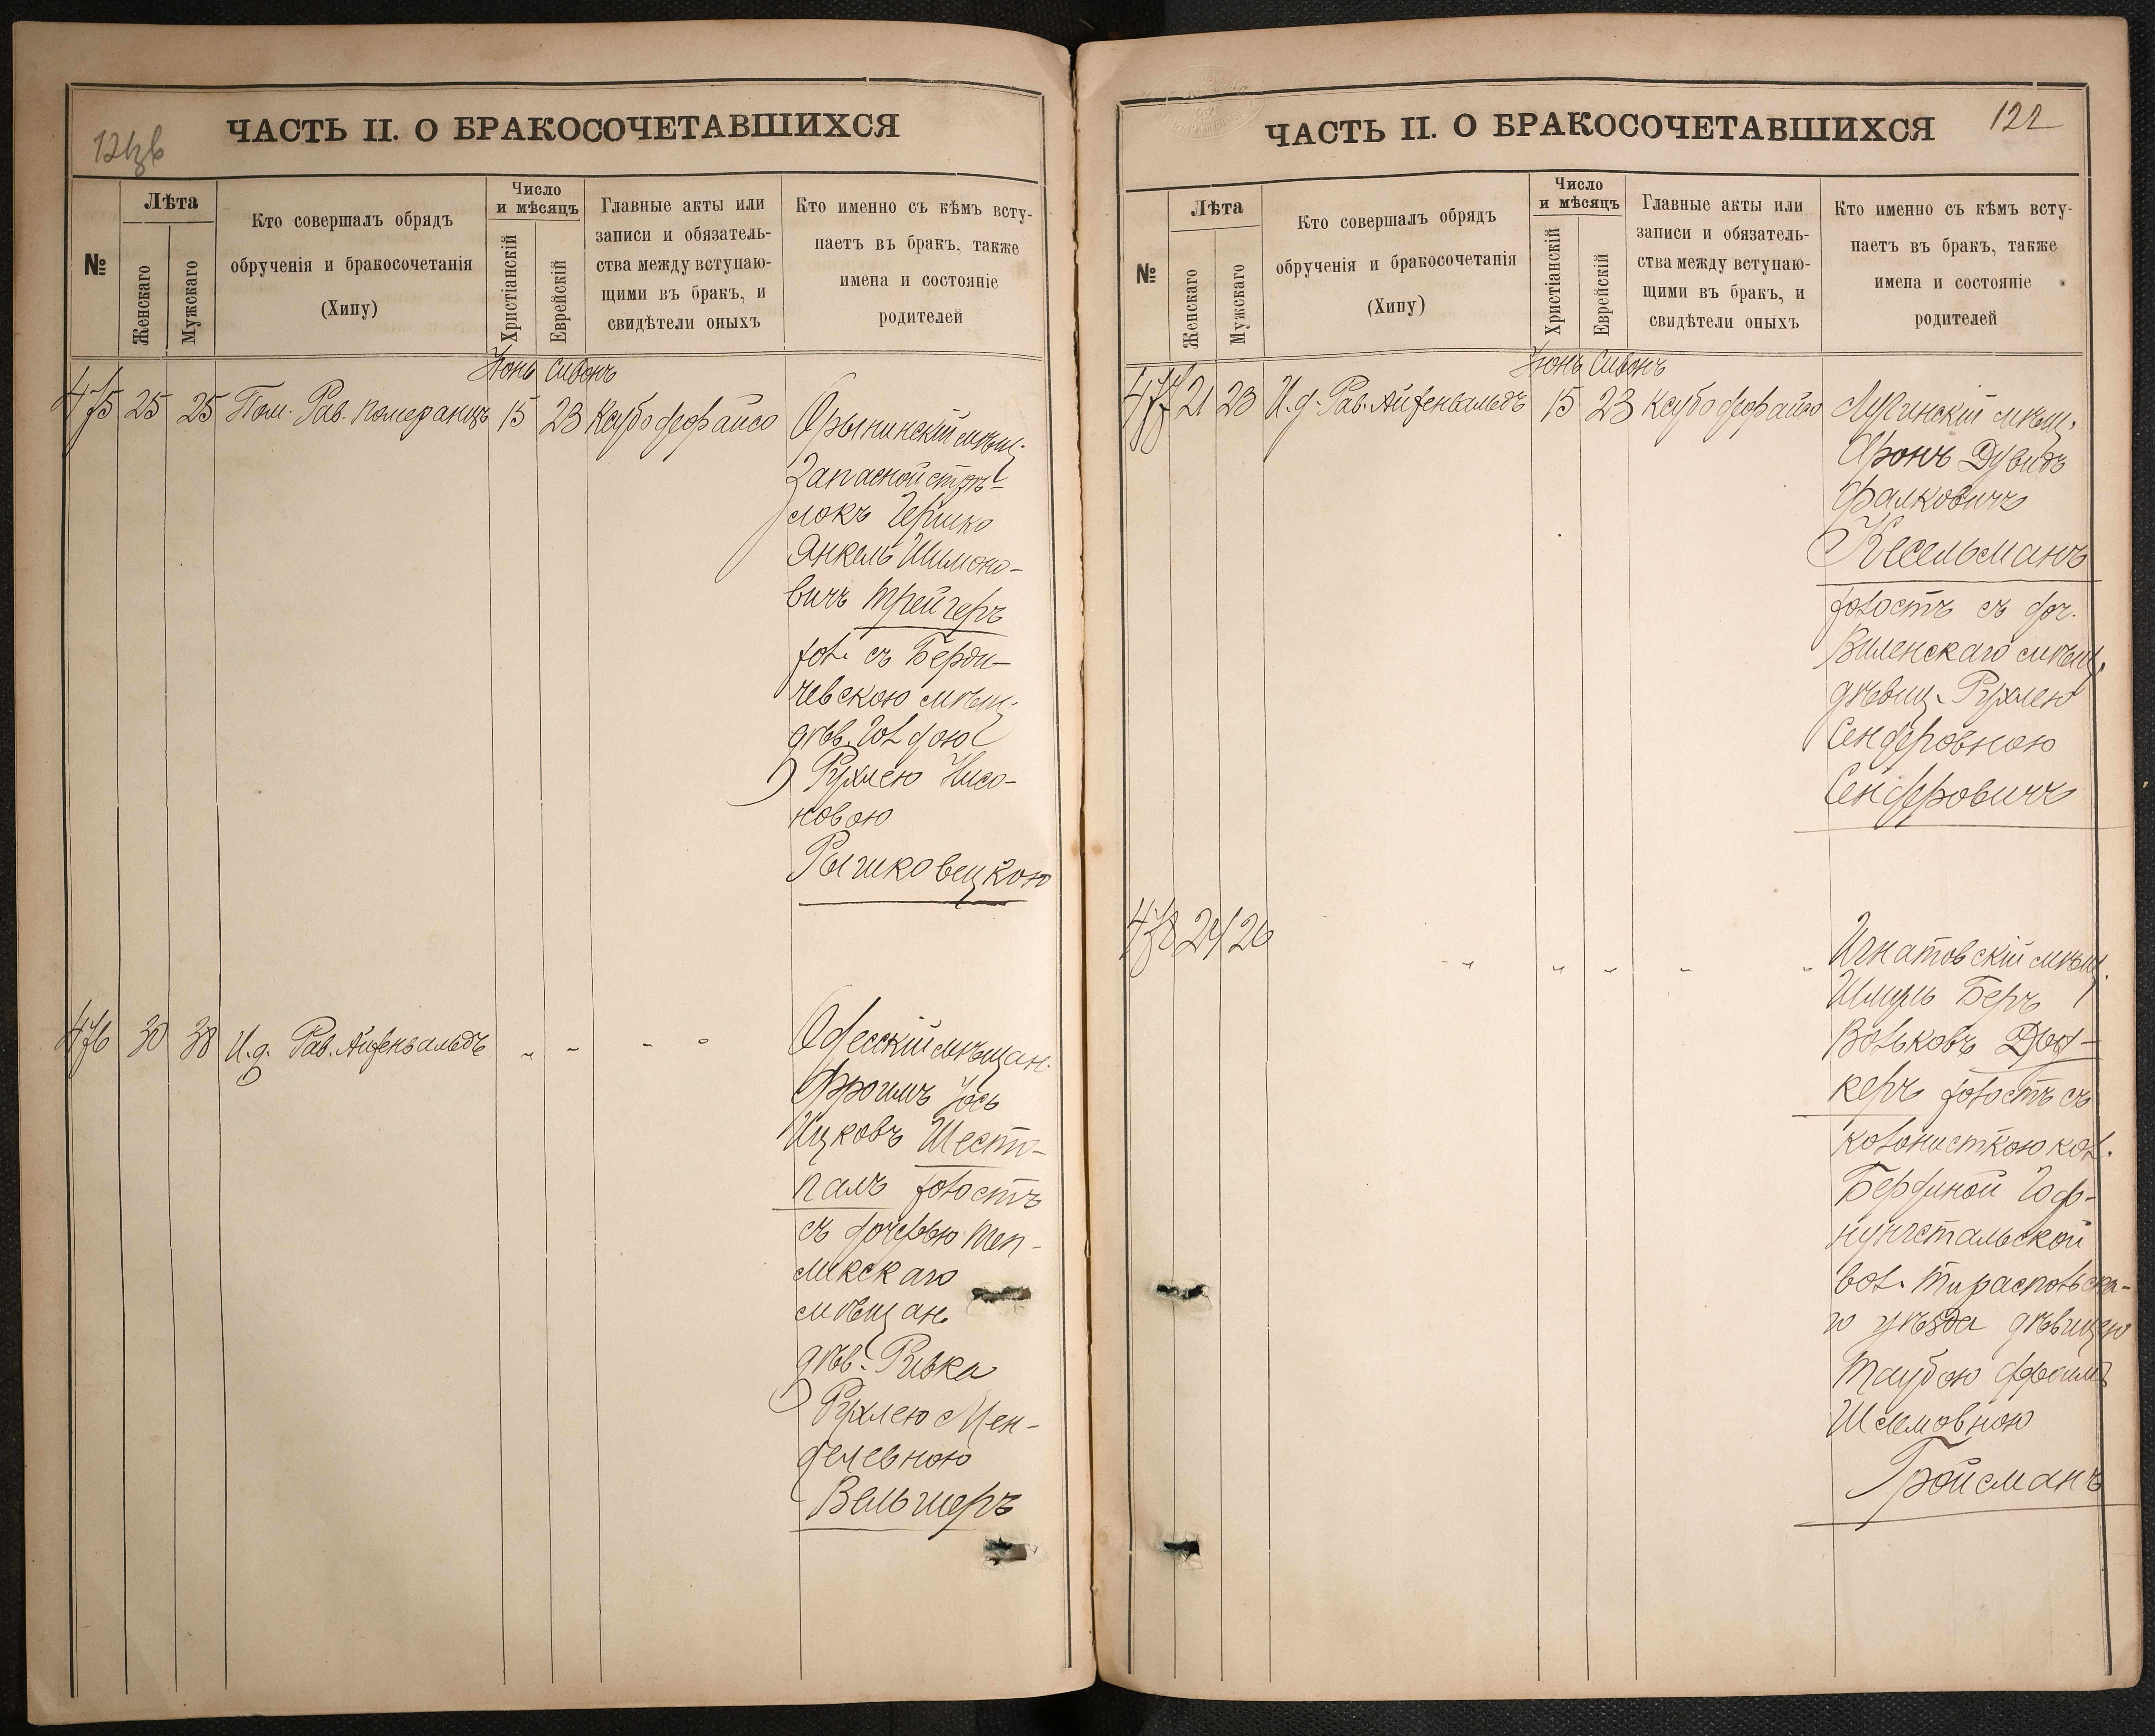 121об
ЧАСТЬ II. О БРАКОСОЧЕТАВШИХСЯ
№
Лѣта
Женскаго
Мужскаго
Кто совершалъ обрядъ
обрученія и бракосочетанія
(Хипу)
Число
и мѣсяцъ
Христіанскій
Еврейскій
Главные акты или
записи и обязатель-
ства между вступаю-
щими въ бракъ, и
свидѣтели оныхъ
Кто именно съ кѣмъ всту-
паетъ въ бракъ, также
имена и состояніе
родителей
Іюнь Сивонъ
475 25 25 Пом. Рав. Померанцъ 15 23 Ксубо дефайсо
Орынинскій мѣщ.
Запасной стрѣ-
локъ Гершко
Янкель Шимоно-
вичъ Трейгеръ
хол. съ Берди-
чевскою мѣщ.
дѣв.Голдою
Рухлею Нисо-
новою
Рышковецкою
476 30 38 И.д. Рав. Айзенвальдъ " " " "
Одесскій мѣщан.
Фроимъ Іось
Ицковъ Шесто-
палъ холостъ
съ дочерью Теп-
ликскаго
мѣщан.
дѣв. Ривка
Рухлею Мен-
делевною
Вельшеръ
122
ЧАСТЬ II. О БРАКОСОЧЕТАВШИХСЯ
№
Лѣта
Женскаго
Мужскаго
Кто совершалъ обрядъ
обрученія и бракосочетанія
(Хипу)
Число
и мѣсяцъ
Христіанскій
Еврейскій
Главные акты или
записи и обязатель-
ства между вступаю-
щими въ бракъ, и
свидѣтели оныхъ
Кто именно съ кѣмъ всту-
паетъ въ бракъ, также
имена и состояніе
родителей
Іюнь Сивонъ
477 21 23 И.д. Рав. Айзенвальдъ 15 23 Ксубо дефайсо
мѣщ.
Аронъ Дувидъ
Фалковичъ
Кесельманъ
холостъ съ доч.
Виленскаго мѣщ.
дѣвиц. Рухлею
Сендеровною
Сендеровичъ
478 24 26 " " " " "
Игнатовскій мѣщ.
Шмуль Беръ
Вольковъ
керъ холостъ съ
колонисткою кол.
Бердиной Гоф-
нунгстальской
вол. Тираспольска-
го уѣзда дѣвицею
Таубою Фроимъ
Шлемовною
Гройсманъ